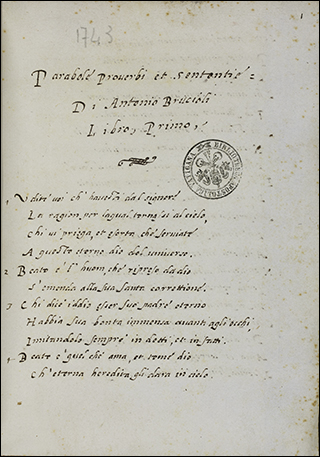 1743
1
Parabole Proverbi et Sententie
Di Antonio Brucioli
Libro, Primo,
Udite voi ch' havete dal signore
La ragion, per laqual torna si al cielo,
Chi vi priega, et esorta che serviate
A questo eterno dio del universo.
2 Beato è l' huom che ripreso da dio
S' emenda alla sua santa correttione.
3 Chi dice iddio esser suo padre eterno
Habbia sua bonta immensa avanti agli occhi
Imitandolo sempre in detti, et in fatti.
Beato è quel che ama, et teme dio
Ch' eterna heredita gli dara in cielo.